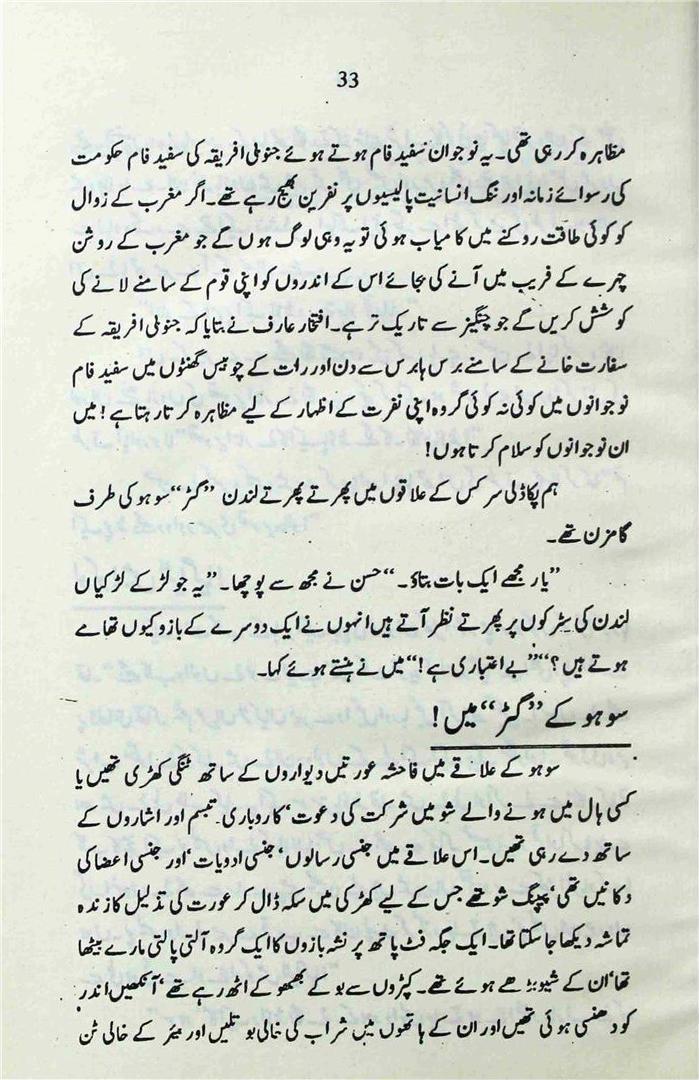 33
مظاہرہ کر رہی تھی۔ یہ نوجوان سفید فام ہوتے ہوئے جنوبی افریقہ کی سفید فام حکومت
کی رسوائے زمانہ اور ننگ انسانیت پالیسیوں پر نفرین بھیج رہے تھے۔ اگر مغرب کے زوال
کو کوئی طاقت روکنے میں کامیاب ہوئی تو یہ وہی لوگ ہوں گے جو مغرب کے روشن
چہرے کے فریب میں آنے کی بجائے اس کے اندروں کو اپنی قوم کے سامنے لانے کی
کوشش کریں گے جو چنگیز سے تاریک تر ہے۔ افتخار عارف نے بتایا کہ جنوبی افریقہ کے
سفارت خانے کے سامنے برس ہا برس سے دن اور رات کے چوبیس گھنٹوں میں سفید فام
نوجوانوں میں کوئی نہ کوئی گروہ اپنی نفرت کے اظہار کے لیے مظاہرہ کرتا رہتا ہے! میں
ان نوجوانوں کو سلام کرتا ہوں!
ہم پکاڈلی سرکس کے علاقوں میں پھرتے پھرتے لندن ”گڑ“ سوہو کی طرف
گامزن تھے۔
”یار مجھے ایک بات بتاؤ۔“ حسن نے مجھ سے پوچھا۔ ”یہ جو لڑکے لڑکیاں
لندن کی سڑکوں پر پھرتے نظر آتے ہیں انہوں نے ایک دوسرے کے بازو کیوں تھامے
ہوتے ہیں؟“ ”بے اعتباری ہے!“ میں نے ہنستے ہوئے کہا۔
سوہو کے ”گڑ“ میں!
سوہو کے علاقے میں فاحشہ عورتیں دیواروں کے ساتھ ننگی کھڑی تھیں یا
کسی ہال میں ہونے والے شو میں شرکت کی دعوت‘ کاروباری تبسم اور اشاروں کے
ساتھ دے رہی تھیں۔ اس علاقے میں جنسی رسالوں‘ جنسی ادویات‘ اور جنسی اعضا کی
دکانیں تھی‘ پیپنگ شو تھے جس کے لیے کھڑکی میں سکہ ڈال کر عورت کی تذلیل کا زندہ
تماشہ دیکھا جا سکتا تھا۔ ایک جگہ فٹ پاتھ پر نشہ بازوں کا ایک گروہ آلتی پالتی مارے بیٹھا
تھا‘ ان کے شیو بڑھے ہوئے تھے۔ کپڑوں سے بو کے بھمھوکے اٹھ رہے تھے‘ آنکھیں اندر
کو دھنسی ہوئی تھیں اور ان کے ہاتھوں میں شراب کی خالی بوتلیں اور بیئر کے خالی ٹن